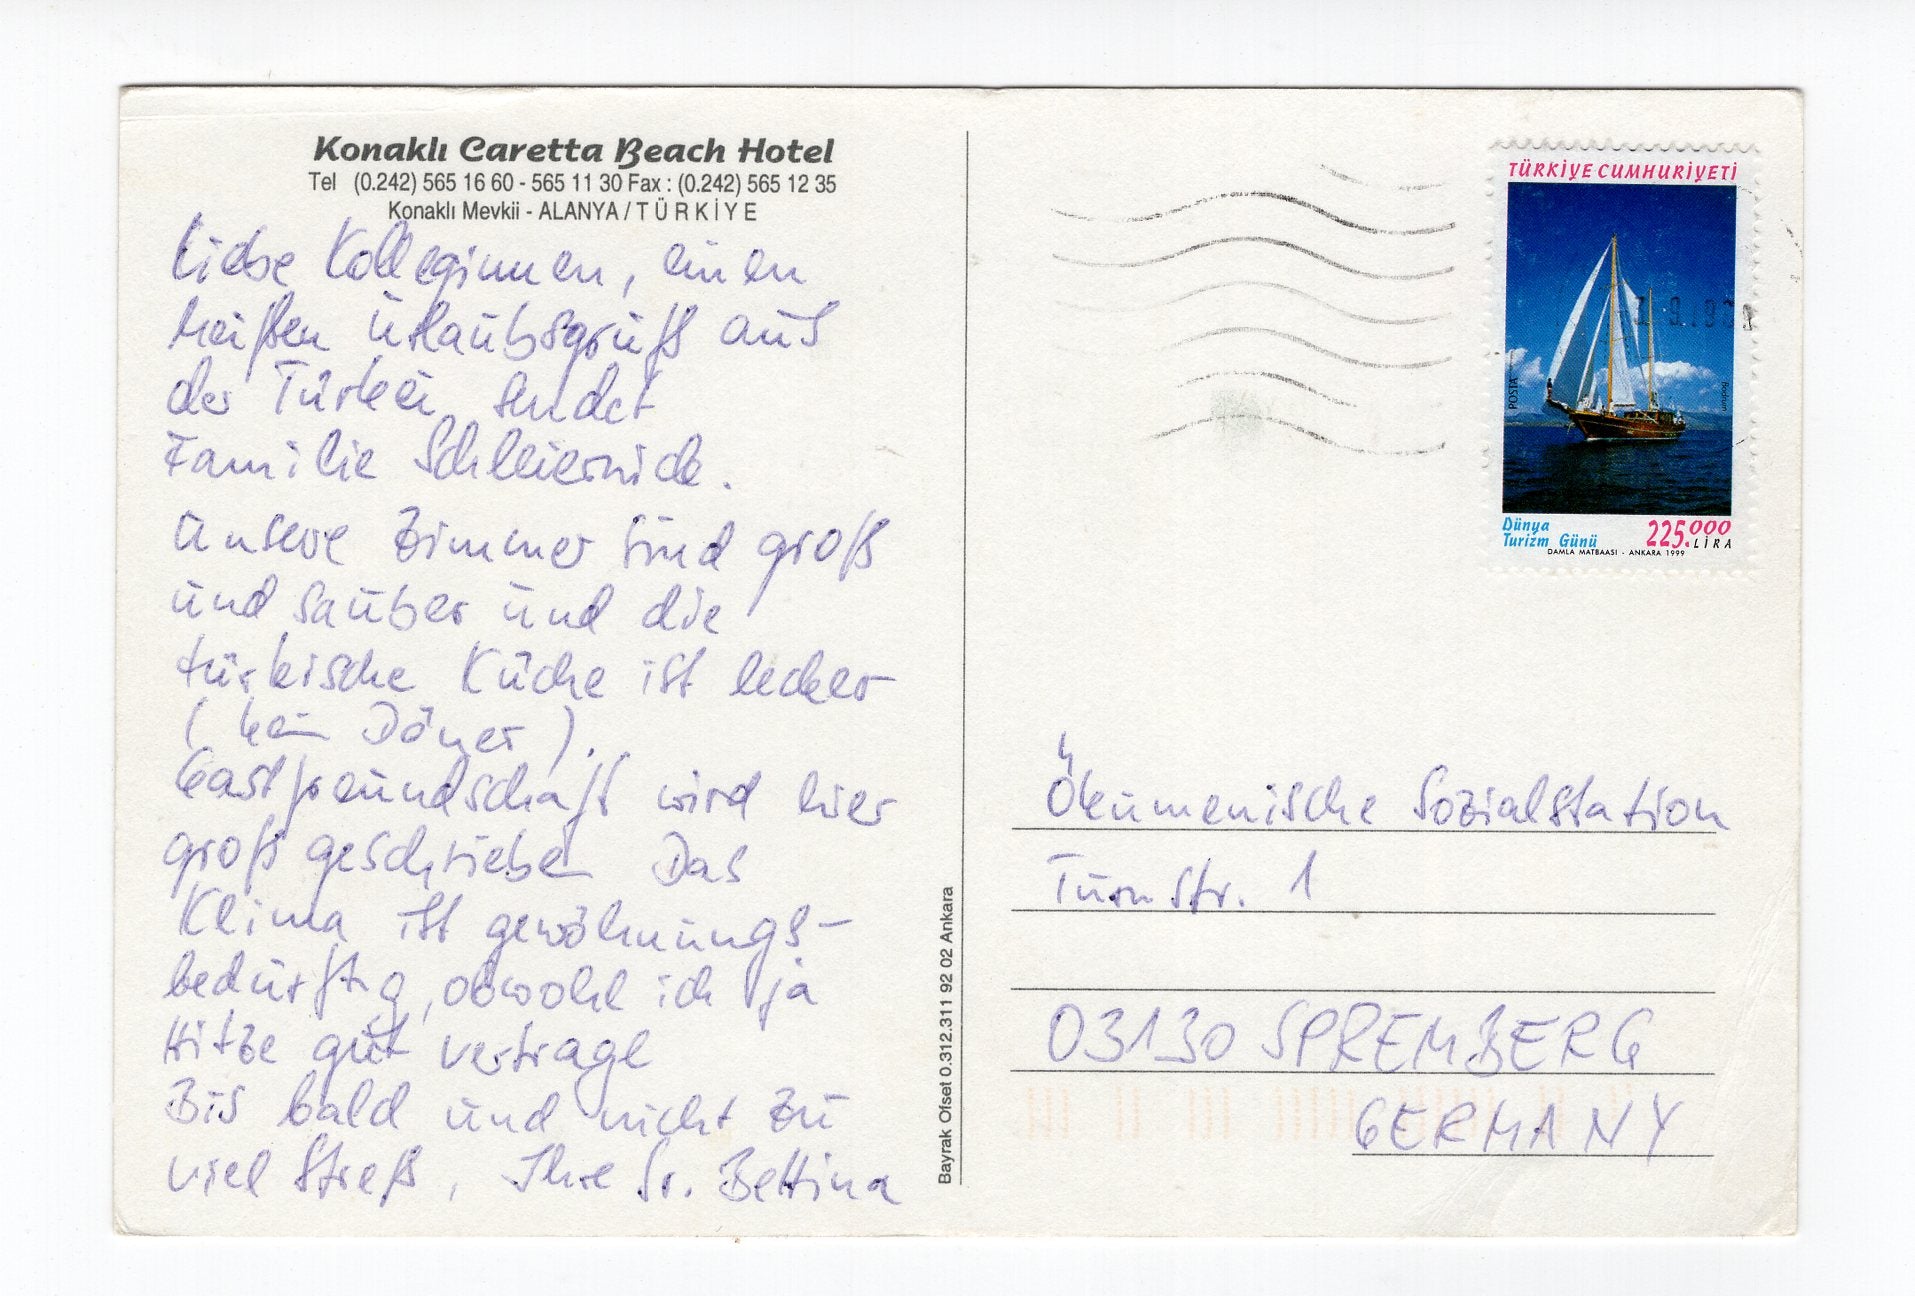 Konaklı Caretta Beach Hotel
Tel (0.242) 565 16 60 - 565 11 30 Fax : (0.242) 565 12 35
Konaklı Mevkii - ALANYA / TÜRKİYE
Liebe Kolleginnen, einen
heißen Urlaubsgruß aus
der Türkei sendet
Familie
Unsere Zimmer sind groß
und sauber und die
türkische Küche ist lecker
(kein Döner).
Gastfreundschaft wird hier
groß geschrieben Das
Klima ist gewöhnungs-
bedürftig, obwohl ich ja
Hitze gut vertrage
Bis bald und nicht zu
viel Streß, Ihre Sr. Bettina
Bayrak Ofset 0.312.311 92 02 Ankara
TÜRKİYE CUMHURİYETİ
POSTA
Bodrum
Dünya
Turizm Günü
225.000
LİRA
DAMLA MATBAASI - ANKARA 1999
Ökumenische Sozialstation
Turnstr. 1
03130 SPREMBERG
GERMANY